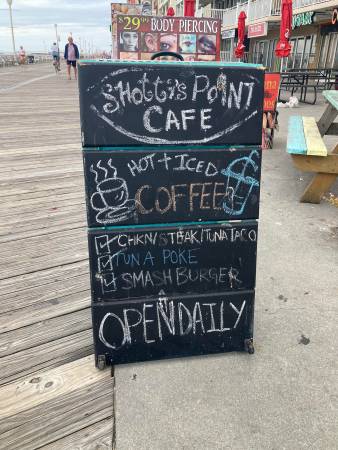 $29.99 BODY PIERCING
SHOTTI'S POINT
CAFE
HOT + ICED
COFFEE
CHKN/STEAK/TUNA TACO
TUNA POKE
SMASHBURGER
OPEN DAILY